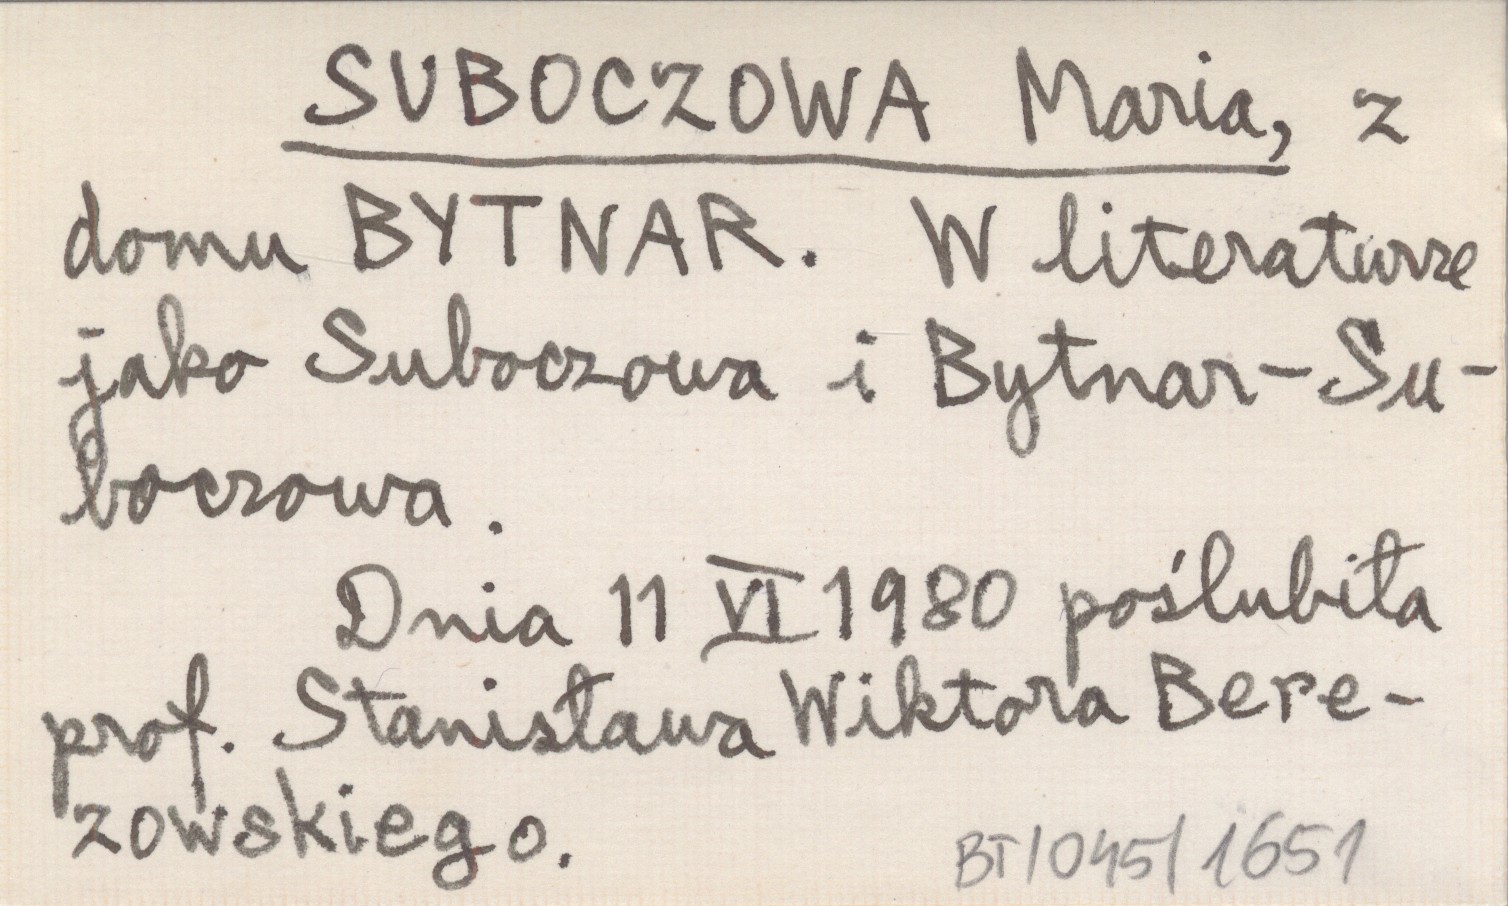 SUBOCZOWA Maria, z
domu BYTNAR. W literaturze
jako Suboczowa i Bytnar-Su-
boczowa.
Dnia 11 VI 1980 poślubiła
prof. Stanisława Wiktora Bere-
zowskiego.
BT/045/1651